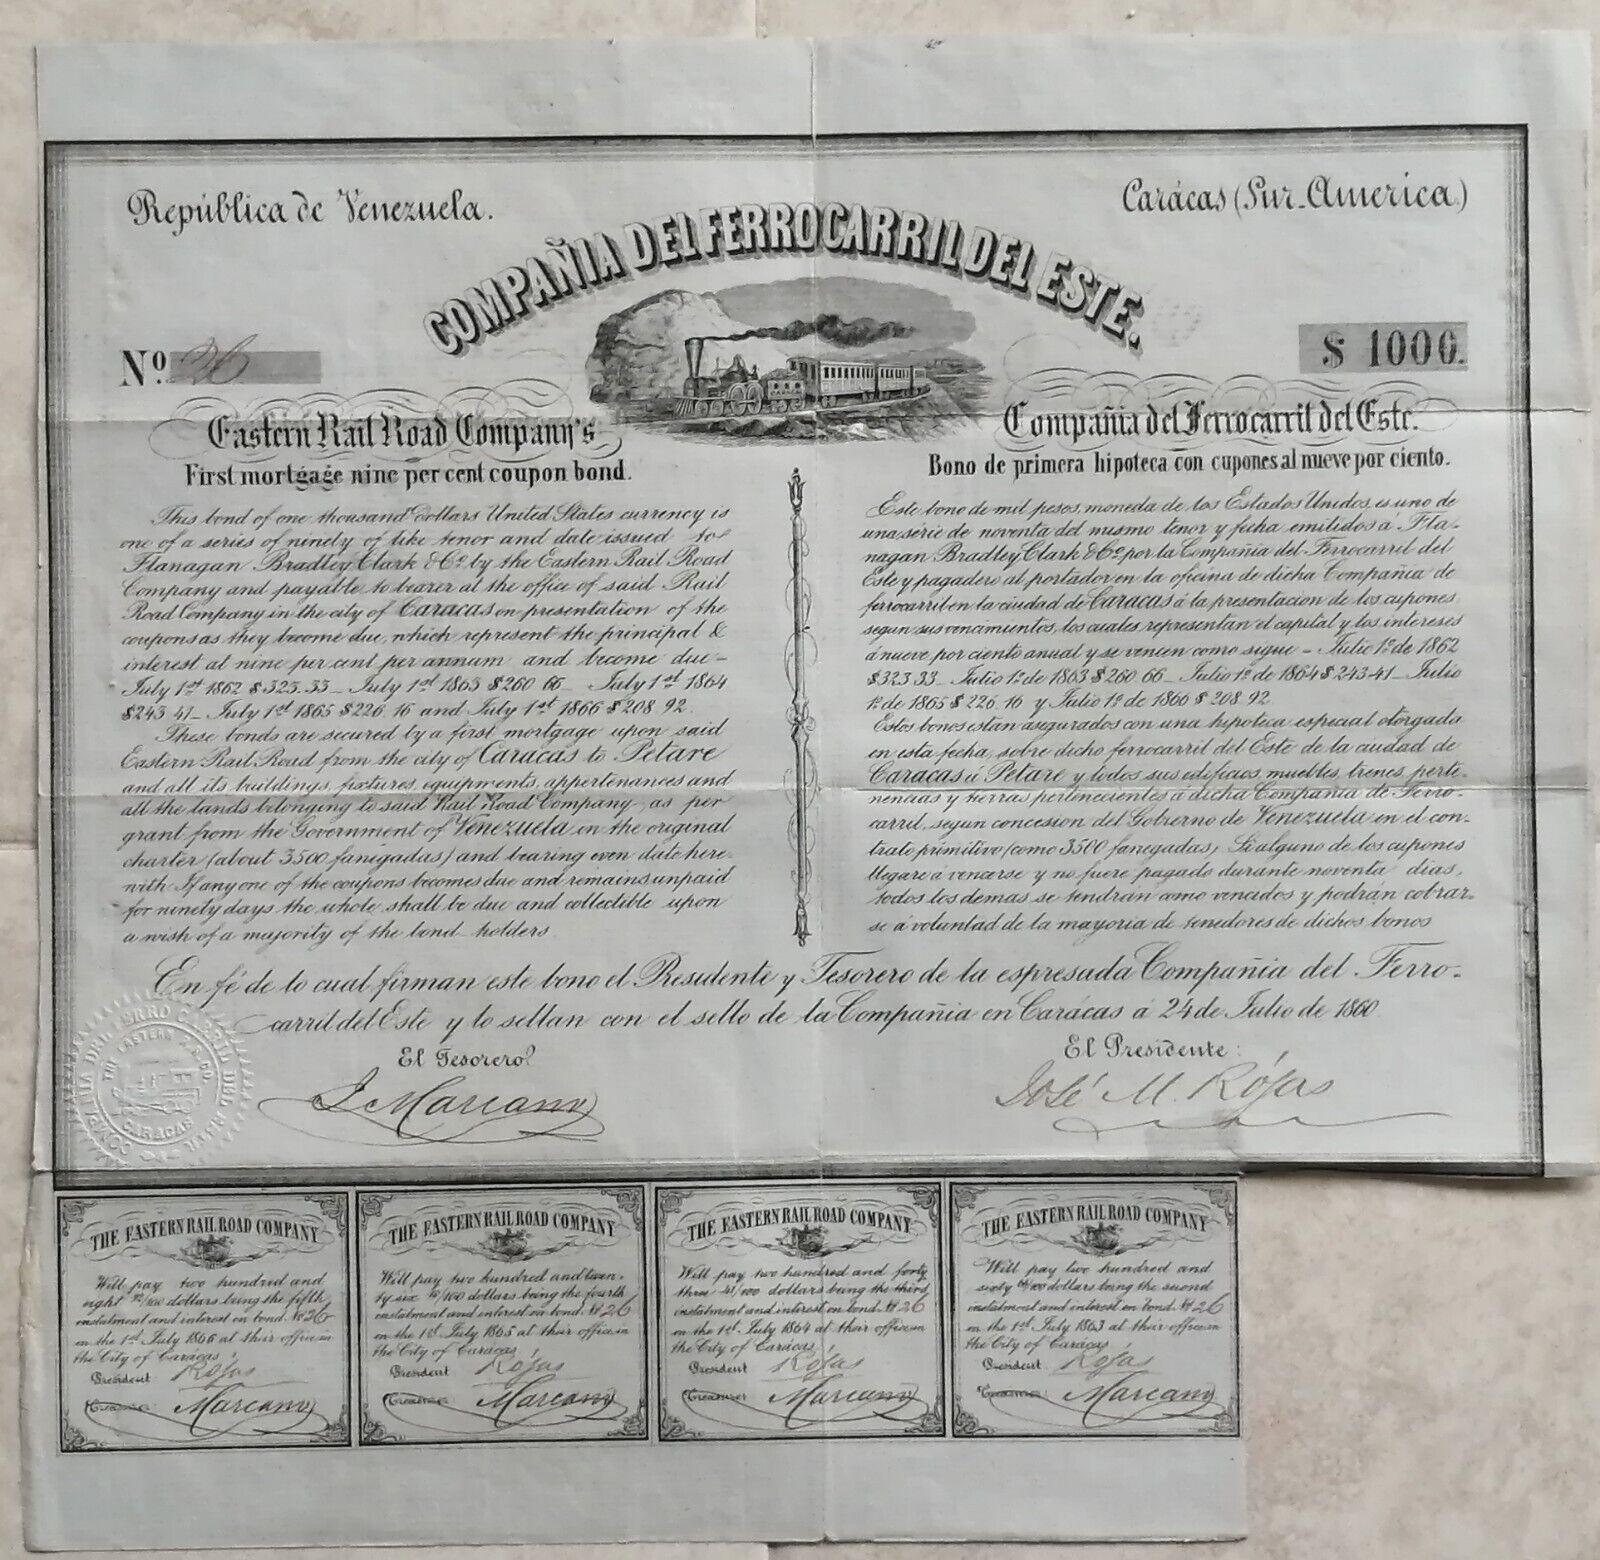 República de Venezuela.
Carácas (Sur-America.)
COMPAÑIA DEL FERROCARRIL DEL ESTE.
Nº. 26
$ 1000.
Eastern Rail Road Company's
First mortgage nine per cent coupon bond.
This bond of one thousand dollars United States currency is
one of a series of ninety of like tenor and date issued to
Flanagan Bradley Clark & Cº. by the Eastern Rail Road
Company and payable to bearer at the office of said Rail
Road Company in the city of Caracas on presentation of the
coupons as they become due, which represent the principal &
interest at nine per cent per annum and become due—
July 1st 1862 $323.33— July 1st 1863 $260 66— July 1st 1864
$243 41— July 1st 1865 $226.16 and July 1st 1866 $208 92.
These bonds are secured by a first mortgage upon said
Eastern Rail Road from the city of Caracas to Petare
and all its buildings, fixtures, equipments, appertenances and
all the lands belonging to said Rail Road Company, as per
grant from the Government of Venezuela in the original
charter (about 3500 fanegadas) and bearing even date here-
with. If any one of the coupons becomes due and remains unpaid
for ninety days the whole shall be due and collectible upon
a wish of a majority of the bond-holders
Compañia del Ferrocarril del Este.
Bono de primera hipoteca con cupones al nueve por ciento.
Este bono de mil pesos, moneda de los Estados Unidos, es uno de
una serie de noventa del mismo tenor y fecha emitidos á Fla-
nagan Bradley Clark & Cº. por la Compañia del Ferrocarril del
Este y pagadero al portador en la oficina de dicha Compañia de
ferrocarril en la ciudad de Caracas á la presentacion de los cupones
segun sus vencimientos, los cuales representan el capital y los intereses
á nueve por ciento anual y se vencen como sigue — Julio 1º de 1862
$323 33— Julio 1º de 1863 $260 66— Julio 1º de 1864 $243-41— Julio
1º de 1865 $226 16 y Julio 1º de 1866 $208 92.
Estos bonos están asegurados con una hipoteca especial otorgada
en esta fecha, sobre dicho ferrocarril del Este de la ciudad de
Caracas á Petare y todos sus edificios, muebles, trenes, perte-
nencias y tierras pertenecientes á dicha Compañia de Ferro-
carril, segun concesion del Gobierno de Venezuela en el con-
trato primitivo (como 3500 fanegadas). Si alguno de los cupones
llegare á vencerse y no fuere pagado durante noventa dias,
todos los demas se tendrán como vencidos y podrán cobrar-
se á voluntad de la mayoria de tenedores de dichos bonos
En fé de lo cual firman este bono el Presidente y Tesorero de la espresada Compañia del Ferro-
carril del Este y lo sellan con el sello de la Compañia en Carácas á 24 de Julio de 1860.
COMPAÑIA DEL FERRO CARRIL DEL ESTE
THE EASTERN R.R. CO.
CARACAS
El Tesorero
Marcano
El Presidente:
José M. Rójas
THE EASTERN RAIL ROAD COMPANY
Will pay two hundred and
eight 92/100 dollars being the fifth
instalment and interest on bond. Nº 26
on the 1st July 1866 at their office in
the City of Carácas
President Rójas
Treasurer Marcano
THE EASTERN RAIL ROAD COMPANY
Will pay two hundred and twen-
ty six 16/100 dollars being the fourth
instalment and interest on bond. Nº 26
on the 1st July 1865 at their office in
the City of Carácas
President Rójas
Treasurer Marcano
THE EASTERN RAIL ROAD COMPANY
Will pay two hundred and forty
three 41/100 dollars being the third
instalment and interest on bond. Nº 26
on the 1st July 1864 at their office in
the City of Carácas
President Rójas
Treasurer Marcano
THE EASTERN RAIL ROAD COMPANY
Will pay two hundred and
sixty 66/100 dollars being the second
instalment and interest on bond. Nº 26
on the 1st July 1863 at their office in
the City of Carácas
President Rójas
Treasurer Marcano